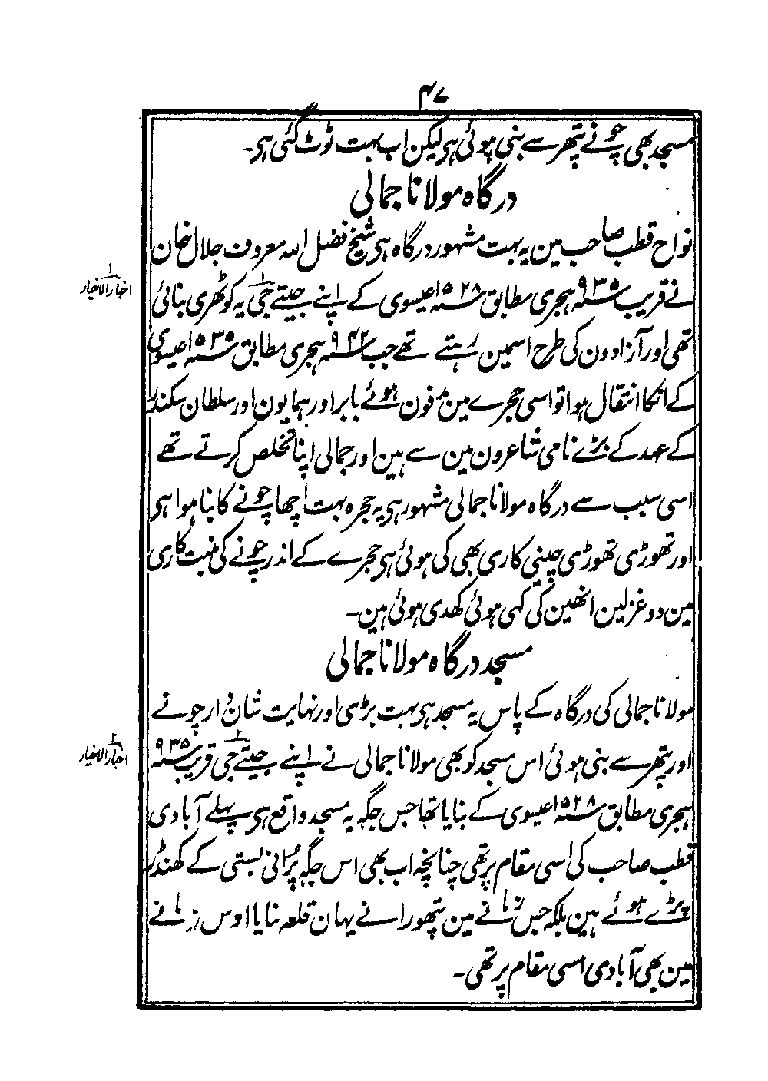 ۴۷
مسجد بھی چونے پتھر سے بنی ہوئی ہی لیکن اب بہت ٹوٹ گئی ہی۔
درگاہ مولانا جمالی
نواح قطب صاحب مین یہ بہت مشہور درگاہ ہی شیخ فضل اللہ معروف جلال خان
نے قریب سنہ ۹۳۵ ہجری مطابق سنہ ۱۵۲۸ عیسوی کے اپنے جیتے جی یہ کوٹھری بنائی
تھی اور آزادون کی طرح اسمین رہتے تھے جب سنہ ۹۴۲ ہجری مطابق سنہ ۱۵۳۵ عیسوی
کے انکا انتقال ہوا تو اسی حجرے مین مدفون ہوئے بابر اور ہمایون اور سلطان سکندر
کے عہد کے بڑے نامی شاعرون مین سے ہین اور جمالی اپنا تخلص کرتے تھے
اسی سبب سے درگاہ مولانا جمالی مشہور ہی یہ حجرہ بہت اچھا چونے کا بنا ہوا ہی
اور تھوڑی تھوڑی چینی کاری بھی کی ہوئی ہی حجرے کے اندر چونے کی منبت کاری
مین دو غزلین انھین کی کہی ہوئی کھدی ہوئی ہین۔
مسجد درگاہ مولانا جمالی
مولانا جمالی کی درگاہ کے پاس یہ مسجد ہی بہت بڑی اور نہایت شاندار چونے
اور پتھر سے بنی ہوئی اس مسجد کو بھی مولانا جمالی نے اپنے جیتے جی قریب سنہ ۹۳۵
ہجری مطابق سنہ ۱۵۲۸ عیسوی کے بنایا تھا جس جگہ یہ مسجد واقع ہی پہلے آبادی
قطب صاحب کی اسی مقام پر تھی چنانچہ اب بھی اس جگہ پرانی بستی کے کھنڈر
پڑے ہوئے ہین بلکہ جس زمانے مین پتھورا نے یہان قلعہ بنایا اوس زمانے
مین بھی آبادی اسی مقام پر تھی۔
۱ اخبار الاخیار
۲ اخبار الاخیار